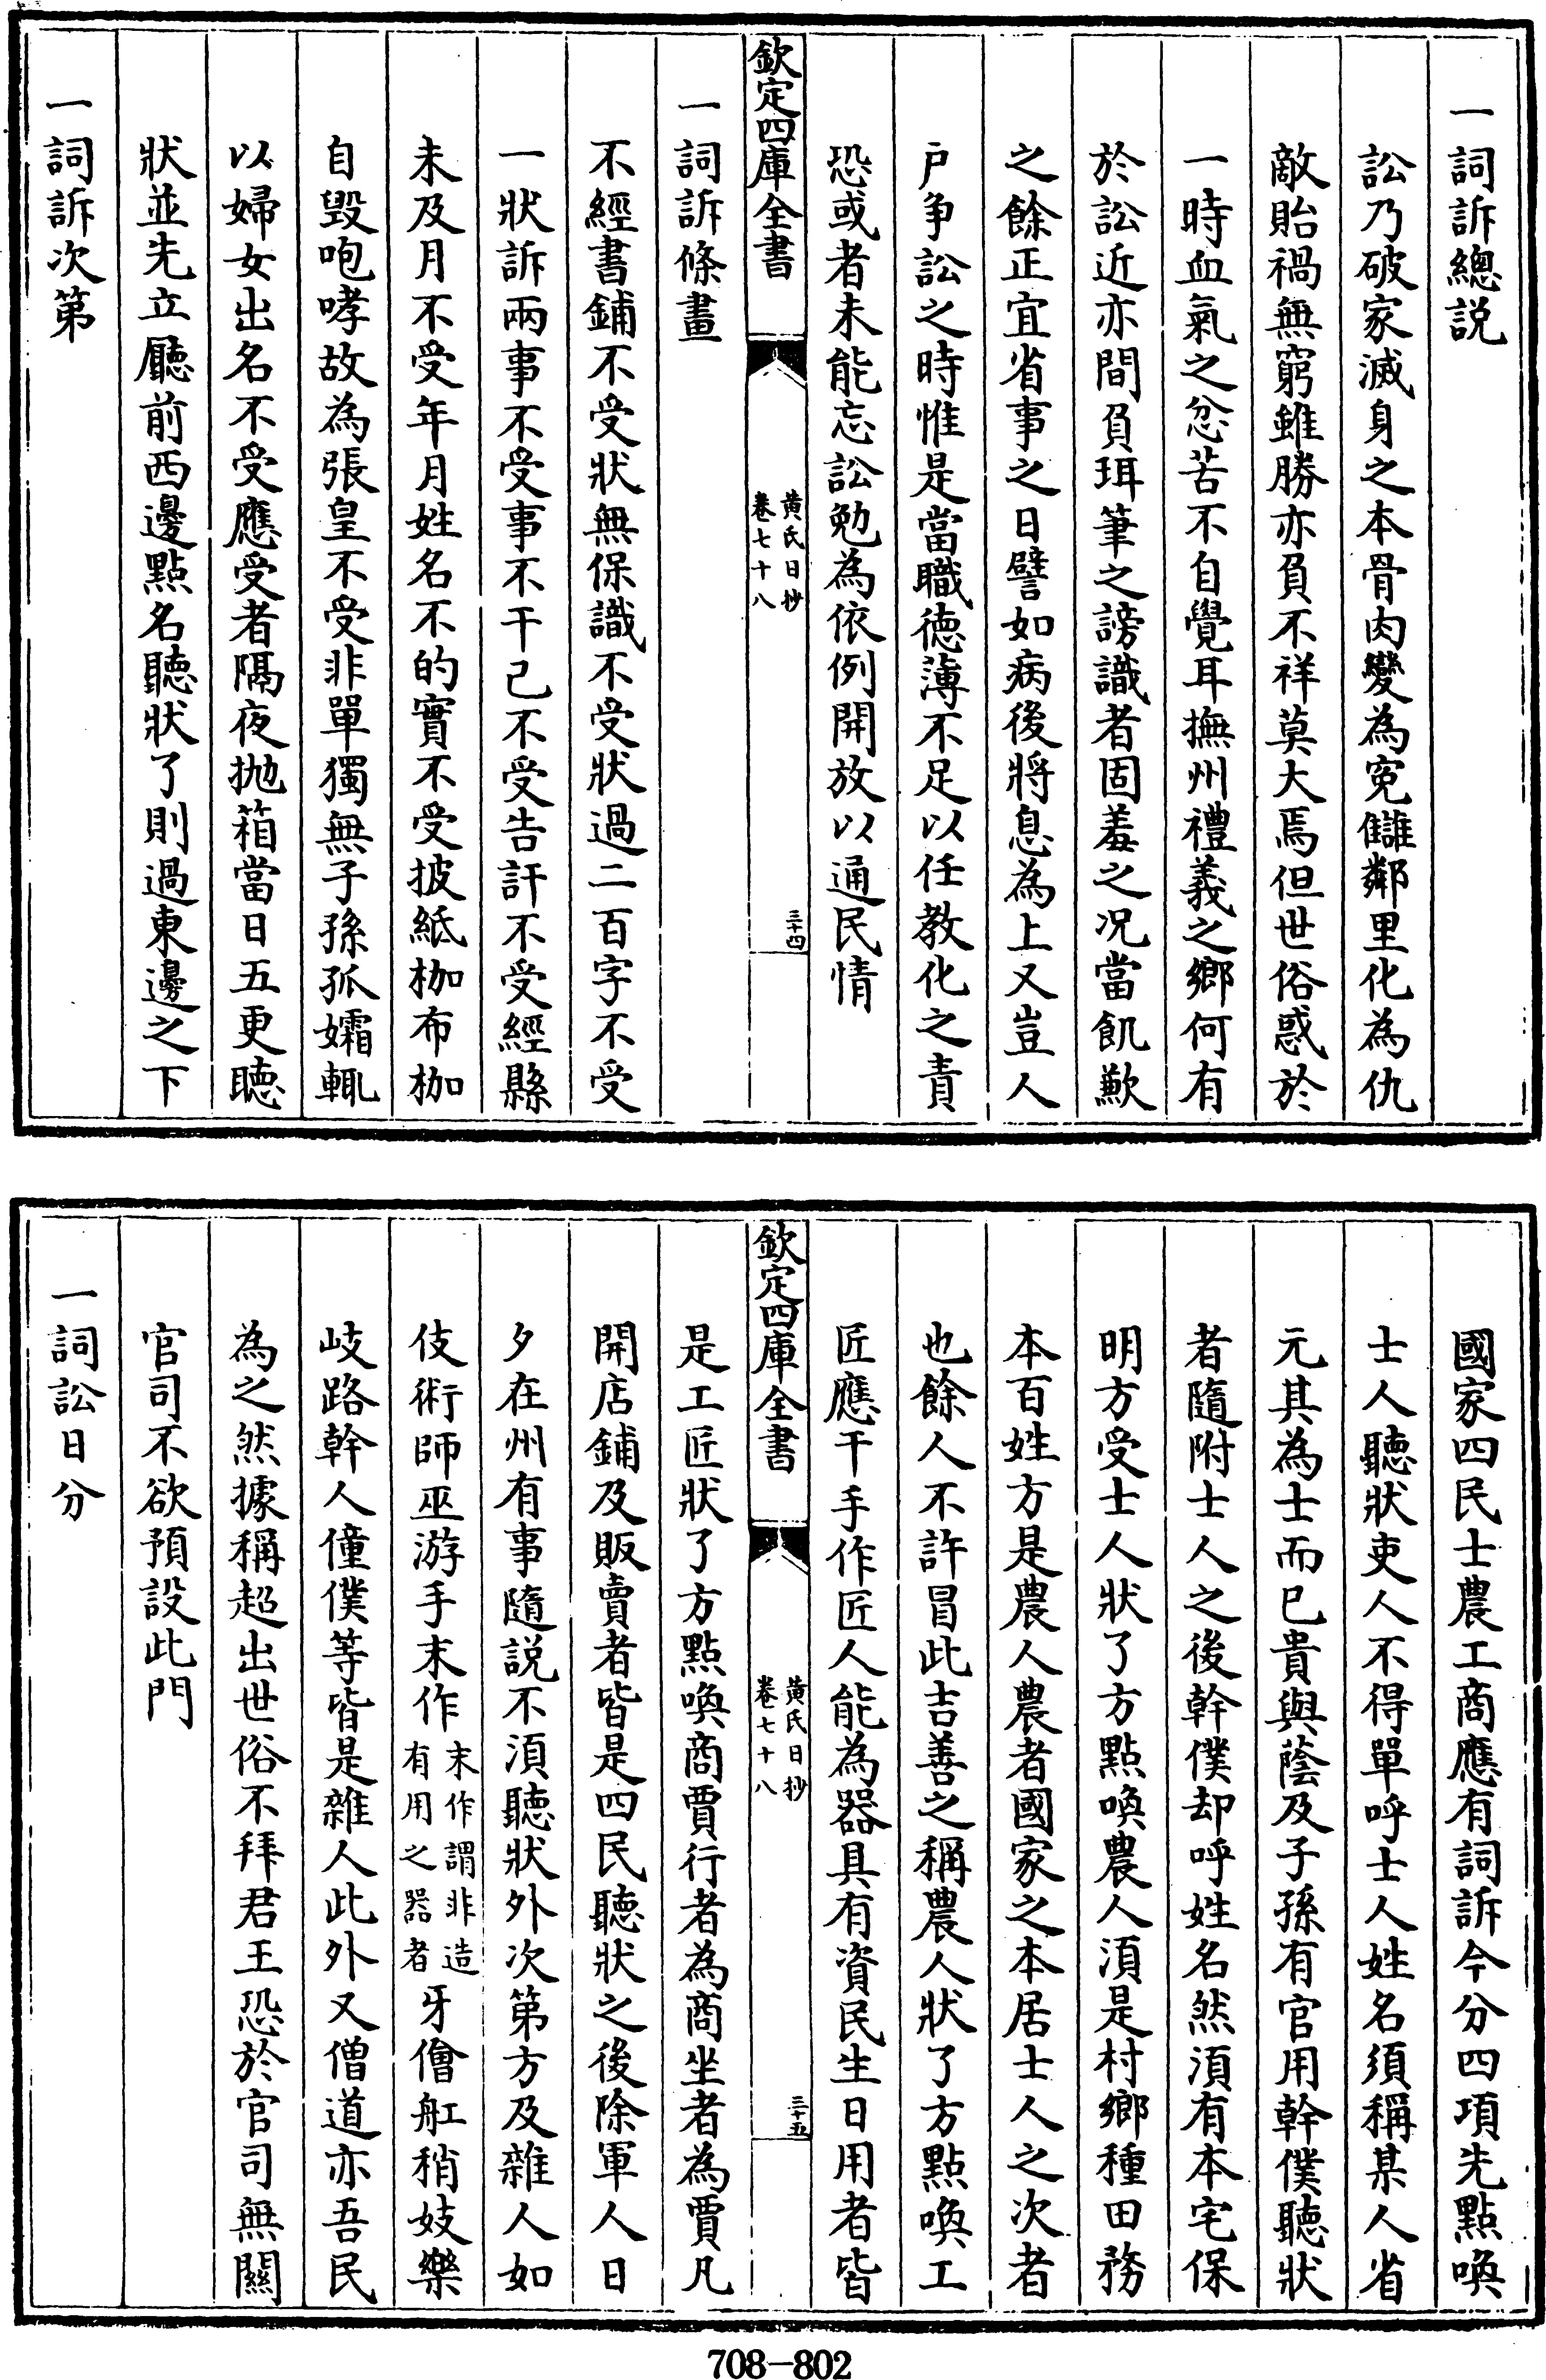 一詞訴總説
訟乃破家滅身之本骨肉變為寃讎鄰里化為仇
敵貽禍無窮雖勝亦負不祥莫大焉但世俗惑於
一時血氣之忿苦不自覺耳撫州禮義之鄉何有
於訟近亦間負珥筆之謗識者固羞之况當飢歉
之餘正宜省事之日譬如病後將息為上又豈人
户争訟之時惟是當職徳薄不足以任教化之責
恐或者未能忘訟勉為依例開放以通民情
欽定四庫全書
黄氏日抄
卷七十八
三十四
一詞訴條畫
不經書鋪不受狀無保識不受狀過二百字不受
一狀訴兩事不受事不干己不受告訐不受經縣
未及月不受年月姓名不的實不受披紙枷布枷
自毀咆哮故為張皇不受非單獨無子孫孤孀輒
以婦女出名不受應受者隔夜抛箱當日五更聽
狀並先立廳前西邊點名聽狀了則過東邊之下
一詞訴次第
國家四民士農工商應有詞訴今分四項先點喚
士人聽狀吏人不得單呼士人姓名須稱某人省
元其為士而已貴與蔭及子孫有官用幹僕聽狀
者隨附士人之後幹僕却呼姓名然湏有本宅保
明方受士人狀了方點喚農人湏是村鄉種田務
本百姓方是農人農者國家之本居士人之次者
也餘人不許冒此吉善之稱農人狀了方點喚工
匠應干手作匠人能為器具有資民生日用者皆
欽定四庫全書
黄氏日抄
卷七十八
三十五
是工匠狀了方點喚商賈行者為商坐者為賈凡
開店鋪及販賣者皆是四民聽狀之後除軍人日
夕在州有事隨説不湏聽狀外次第方及雜人如
伎術師巫游手末作末作謂非造有用之器者牙儈舡稍妓樂
岐路幹人僮僕等皆是雜人此外又僧道亦吾民
為之然據稱超出世俗不拜君王恐於官司無關
官司不欲預設此門
一詞訟日分
708-802